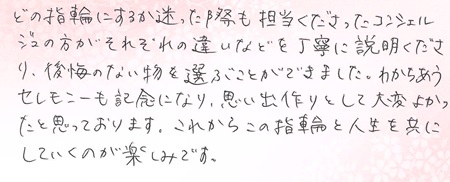 どの指輪にするか迷った際も担当くださったコンシェル
ジュの方がそれぞれの違いなどを丁寧に説明くださ
り、後悔のない物を選ぶことができました。わかちあう
セレモニーも記念になり、思い出作りとして大変よかっ
たと思っております。これからこの指輪と人生を共に
していくのが楽しみです。